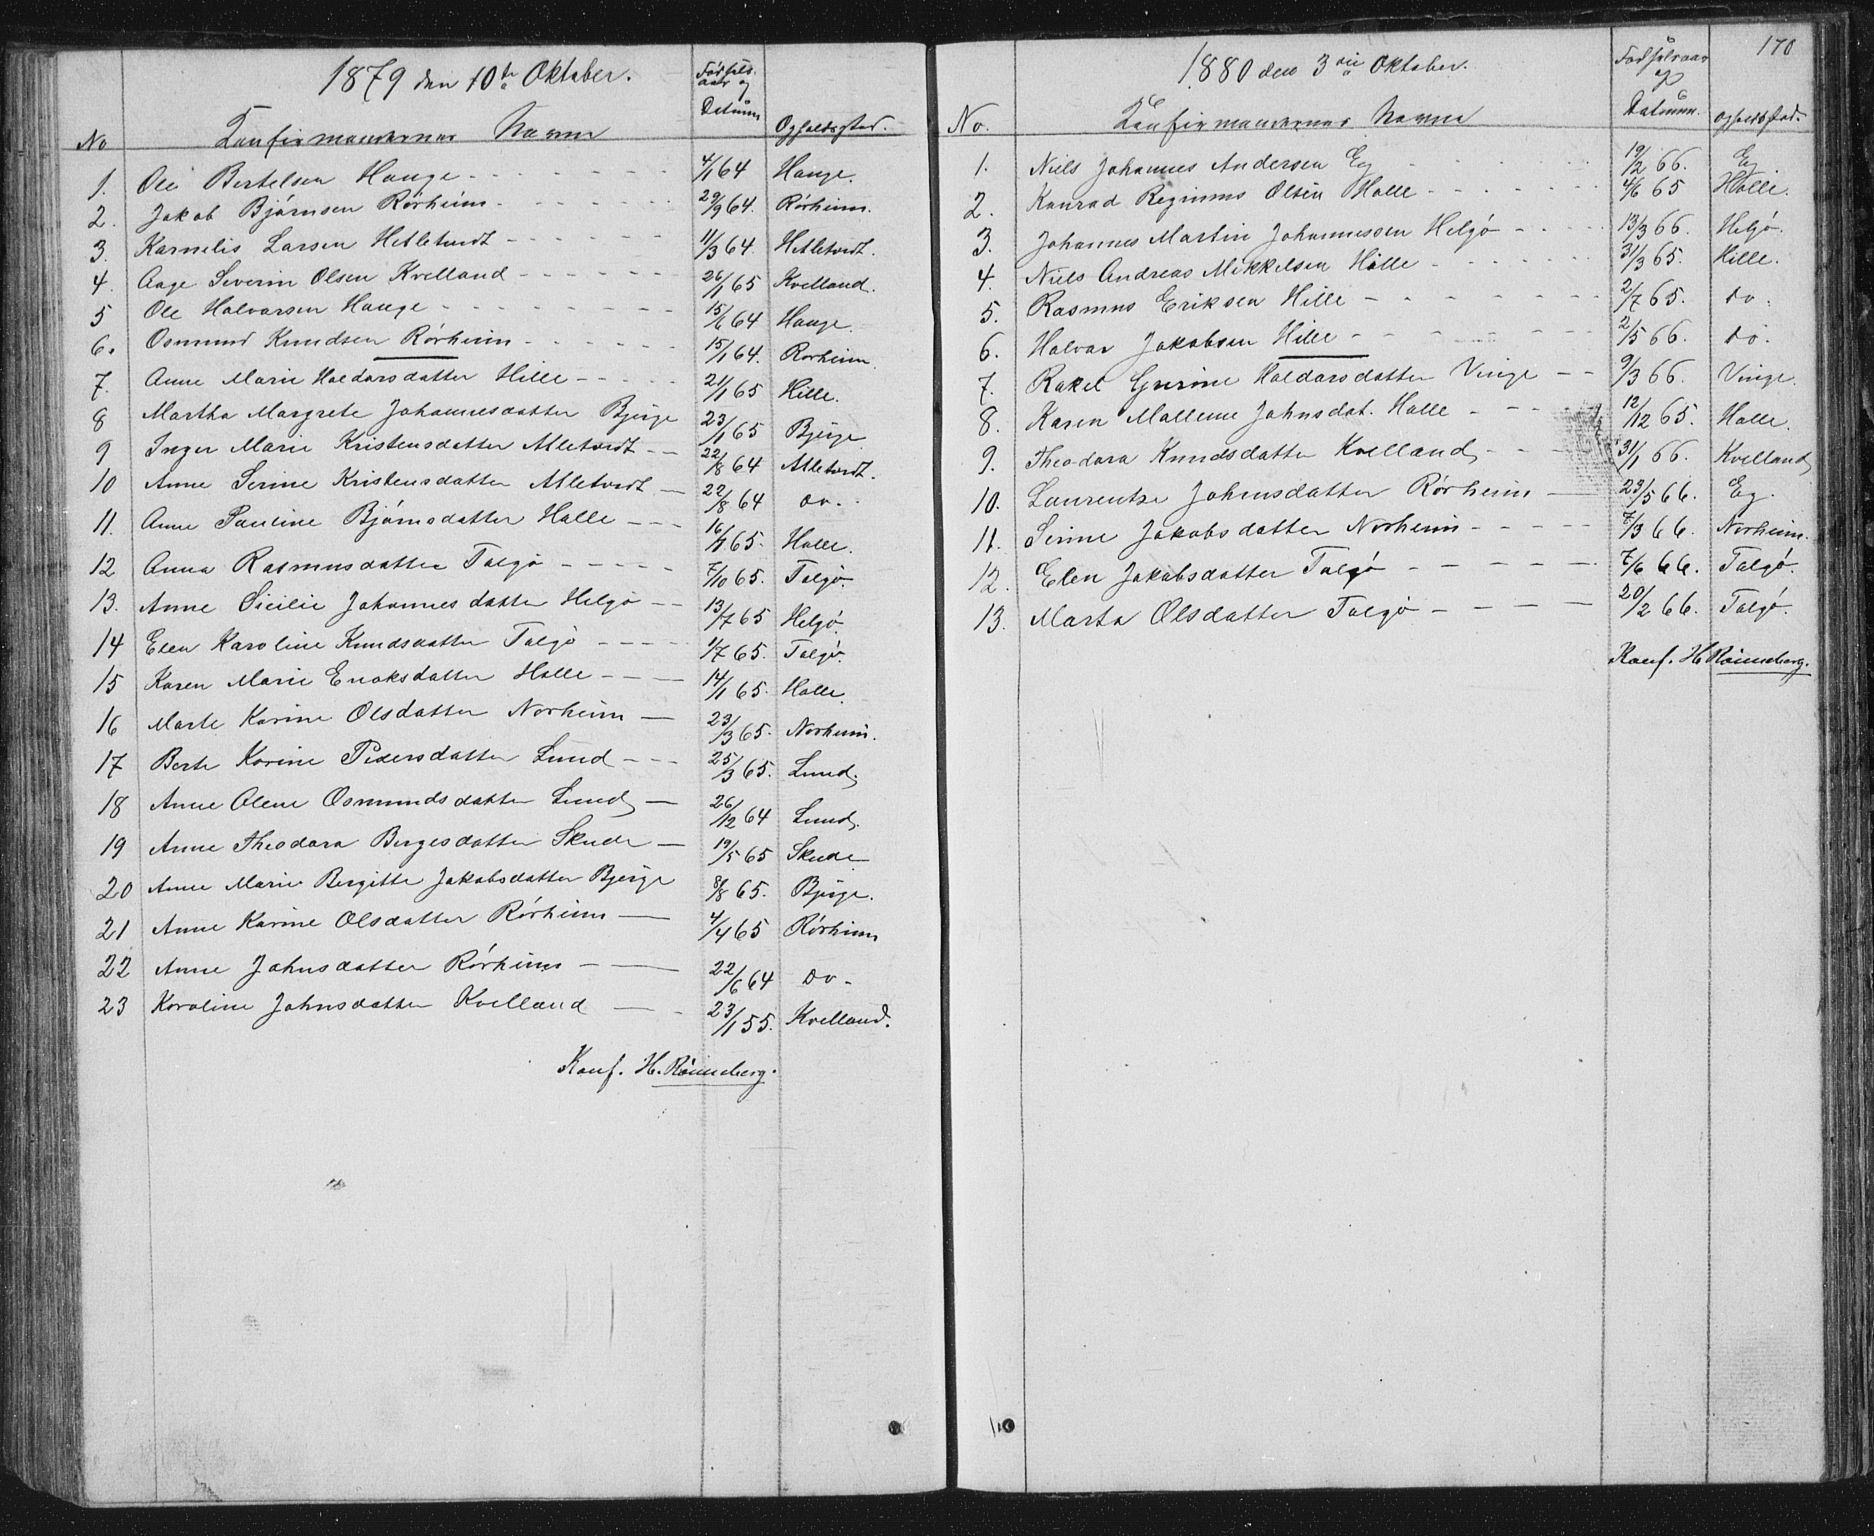 1879 den 10de Oktober.
No Konfirmandernes Navne Fødsels-aar og Datum Opholdssted.
1. Ole Bertelsen Hauge - 4/1 64 Hauge.
2. Jakob Bjørnsen Rørheim - 29/9 64. Rørheim.
3. Kornelis Larsen Hetletvedt - 11/3 64 Hetletvdt.
4. Aage Severin Olsen Kvelland - 26/1 65 Kvelland.
5 Ole Halvorsen Hauge - 15/6 64 Hauge.
6. Osmund Knudsen Rørheim - 15/1 64. Rørheim.
7. Anne Marie Haldorsdatter Hille - 21/1 65 Hille.
8 Martha Margrete Johannesdatter Bjerge 23/1 65 Bjerge
9 Inger Marie Kristensdatter Atletvedt - 22/8 64 Atletvedt.
10 Anne Serine Kristensdatter Atletvedt - 22/8 64 Do.
11. Anne Pauline Bjørnsdatter Halle - 16/1 65. Halle.
12 Anna Rasmusdatter Talgø - 7/10 65. Talgø.
13. Anne Sicilie Johannesdatter Helgø - 13/7 65 Helgø.
14 Elen Karoline Knudsdatter Talgø - 1/7 65. Talgø.
15 Karen Marie Enoksdatter Halle - 14/1 65. Halle.
16 Marte Karine Olsdatter Norheim - 23/3 65. Norheim.
17 Berte Karine Pedersdatter Lund - 25/3 65. Lund.
18 Anne Olene Osmundsdatter Lund - 26/12 64 Lund.
19 Anne Theodora Bergesdatter Skude - 19/5 65 Skude
20 Anne Marie Bergitte Jakobsdatter Bjerge 8/8 65. Bjerge.
21 Anne Karine Olsdatter Rørheim - 4/4 65 Rørheim
22 Anne Johnsdatter Rørheim - 22/6 64 Do.
23 Karoline Johnsdatter Kvelland - 23/1 55. Kvelland.
Konf. H. Rönneberg.
170
1880 den 3die Oktober.
No. Konfirmandernes Navne Fødselsaar og Datum. Opholdsted.
1. Niels Johannes Andersen Eg - 19/2 66. Eg
2. Konrad Reginius Olsen Halle - 4/6 65 Halle.
3. Johannes Martin Johannessen Helgø - 13/3 66. Helgø.
4. Niels Andreas Mikkelsen Hille - 31/3 65. Hille.
5. Rasmus Eriksen Hille - 2/7 65. Do.
6. Halvor Jakobsen Hille - 2/5 66. Do.
7. Rakel Gurine Haldorsdatter Vinge - 9/3 66. Vinge.
8. Karen Mallene Johnsdat. Halle - 12/12 65. Halle.
9. Theodora Knudsdatter Kvelland - 31/1 66. Kvelland
10. Laurentse Johnsdatter Rørheim - 23/5 66. Eg.
11. Serine Jakobsdatter Norheim - 7/3 66. Norheim.
12. Elen Jakobsdatter Talgø - 7/6 66. Talgø.
13. Marta Olsdatter Talgø - 20/2 66. Talgø.
Konf. H. Rönneberg.